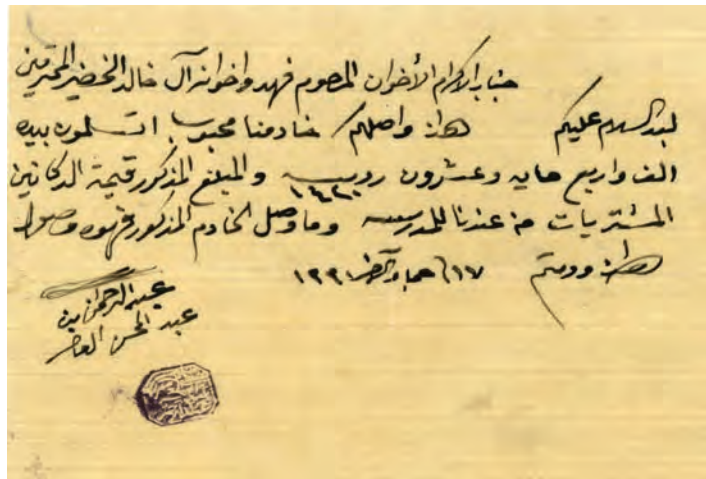 جناب الاكرام الأخوان المحترم فهد واخوانه آل خالد الخضير المحترمين
بعد السلام عليكم هذا واصلكم خادمنا محبوب اتسلمون بيده
الف واربع مايه وعشرون روبيه ١٤٢٠ والمبلغ المذكور قيمة الدكانين
المشتريات من عندنا للمدرسه وما وصل الخادم المذكور فهو وصول
هذا ودمتم ١٧ جماد آخر ١٣٣١
عبد الرحمن بن
عبد المحسن